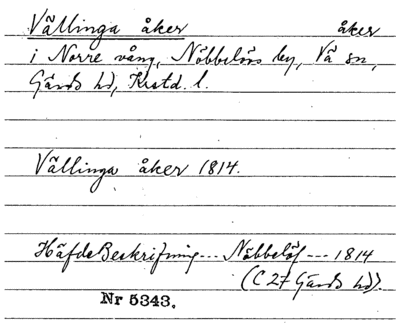 Vällinga åker åker
i Norre vång, Nöbbelövs by, Vä sn,
Gärds hd, Krstd. l.
Vällinga åker 1814.
HäfdeBeskrifning --- Nöbbelöf --- 1814
(C 27 Gärds hd).
Nr 5343.